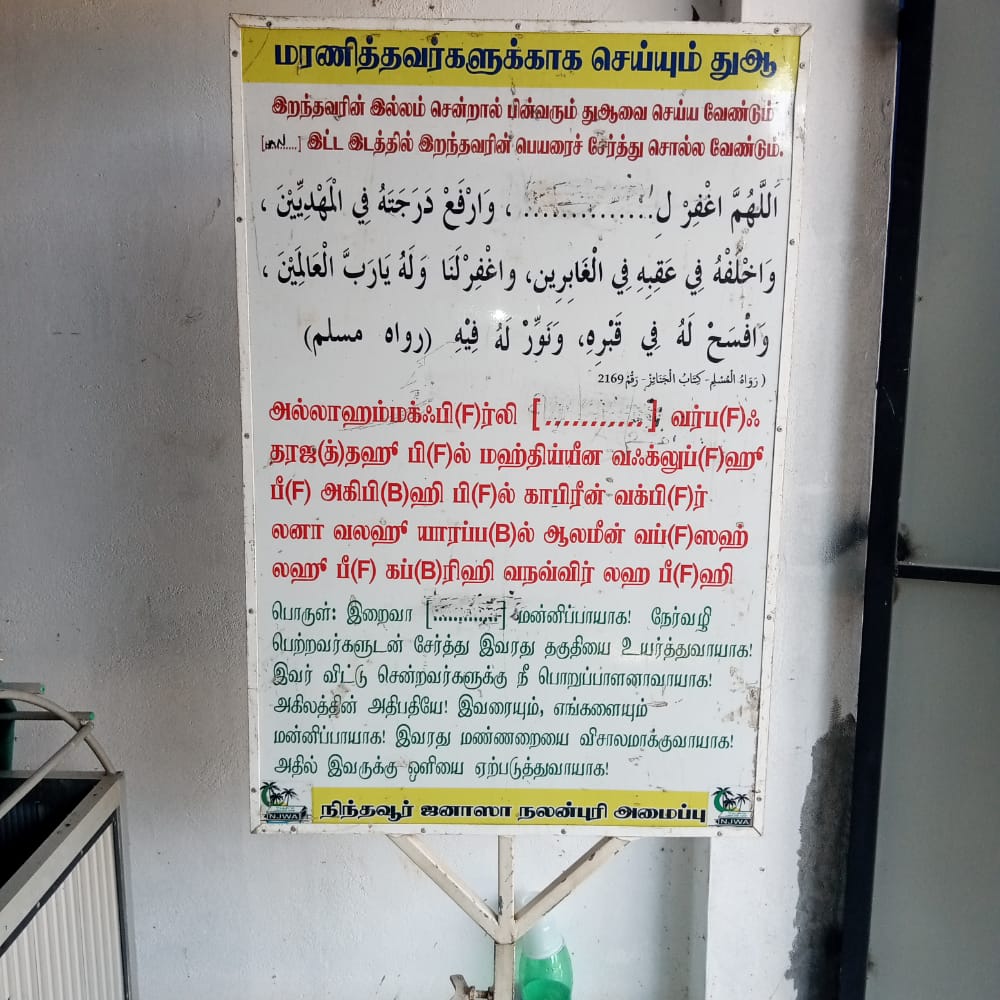 மரணித்தவர்களுக்காக செய்யும் துஆ
இறந்தவரின் இல்லம் சென்றால் பின்வரும் துஆவை செய்ய வேண்டும்
[....] இட்ட இடத்தில் இறந்தவரின் பெயரைச் சேர்த்து சொல்ல வேண்டும்.
اَللَّهُمَّ اغْفِرْ لِ.............. ، وَارْفَعْ دَرَجَتَهُ فِي الْمَهْدِيِّيْنَ ،
وَاخْلُفْهُ فِي عَقِبِهِ فِي الْغَابِرِين، واغْفِرْلَنَا وَلَهُ يَارَبَّ الْعَالَمِيْنَ ،
وَافْسَحْ لَهُ فِي قَبْرِهِ، وَنَوِّرْ لَهُ فِيْهِ (رواه مسلم)
( رَوَاهُ الْمُسْلِم- كِتَابُ الْجَنَائِزْ- رَقْمُ 2169
அல்லாஹம்மக்ஃபி(F)ர்லி [...........] வர்ப(F)ஃ
தரஜ(த்)தஹூ பி(F)ல் மஹ்திய்யீன வஃக்லுப்(F)ஹூ
பீ(F) அகிபி(B)ஹி பி(F)ல் காபிரீன் வக்பி(F)ர்
லனா வலஹூ யாரப்ப(B)ல் ஆலமீன் வப்(F)ஸஹ்
லஹூ பீ(F) கப்(B)ரிஹி வநவ்விர் லஹ பீ(F)ஹி
பொருள்: இறைவா [...........] மன்னிப்பாயாக! நேர்வழி
பெற்றவர்களுடன் சேர்த்து இவரது தகுதியை உயர்த்துவாயாக!
இவர் விட்டு சென்றவர்களுக்கு நீ பொறுப்பாளனாவாயாக!
அகிலத்தின் அதிபதியே! இவரையும், எங்களையும்
மன்னிப்பாயாக! இவரது மண்ணறையை விசாலமாக்குவாயாக!
அதில் இவருக்கு ஒளியை ஏற்படுத்துவாயாக!
NJWA
நிந்தவூர் ஜனாஸா நலன்புரி அமைப்பு
NJWA